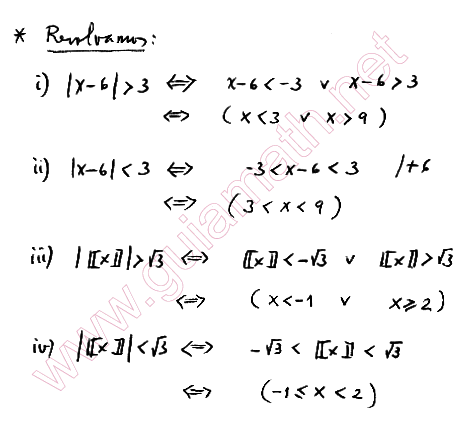 * Resolvamos:
i) |x-6|>3 ⇔ x-6<-3 ∨ x-6>3
⇔ (x<3 ∨ x>9)
ii) |x-6|<3 ⇔ -3<x-6<3 /+6
⇔ (3<x<9)
iii) |⟦x⟧|>√3 ⇔ ⟦x⟧<-√3 ∨ ⟦x⟧>√3
⇔ (x<-1 ∨ x≥2)
iv) |⟦x⟧|<√3 ⇔ -√3<⟦x⟧<√3
⇔ (-1≤x<2)
www.guiamath.net